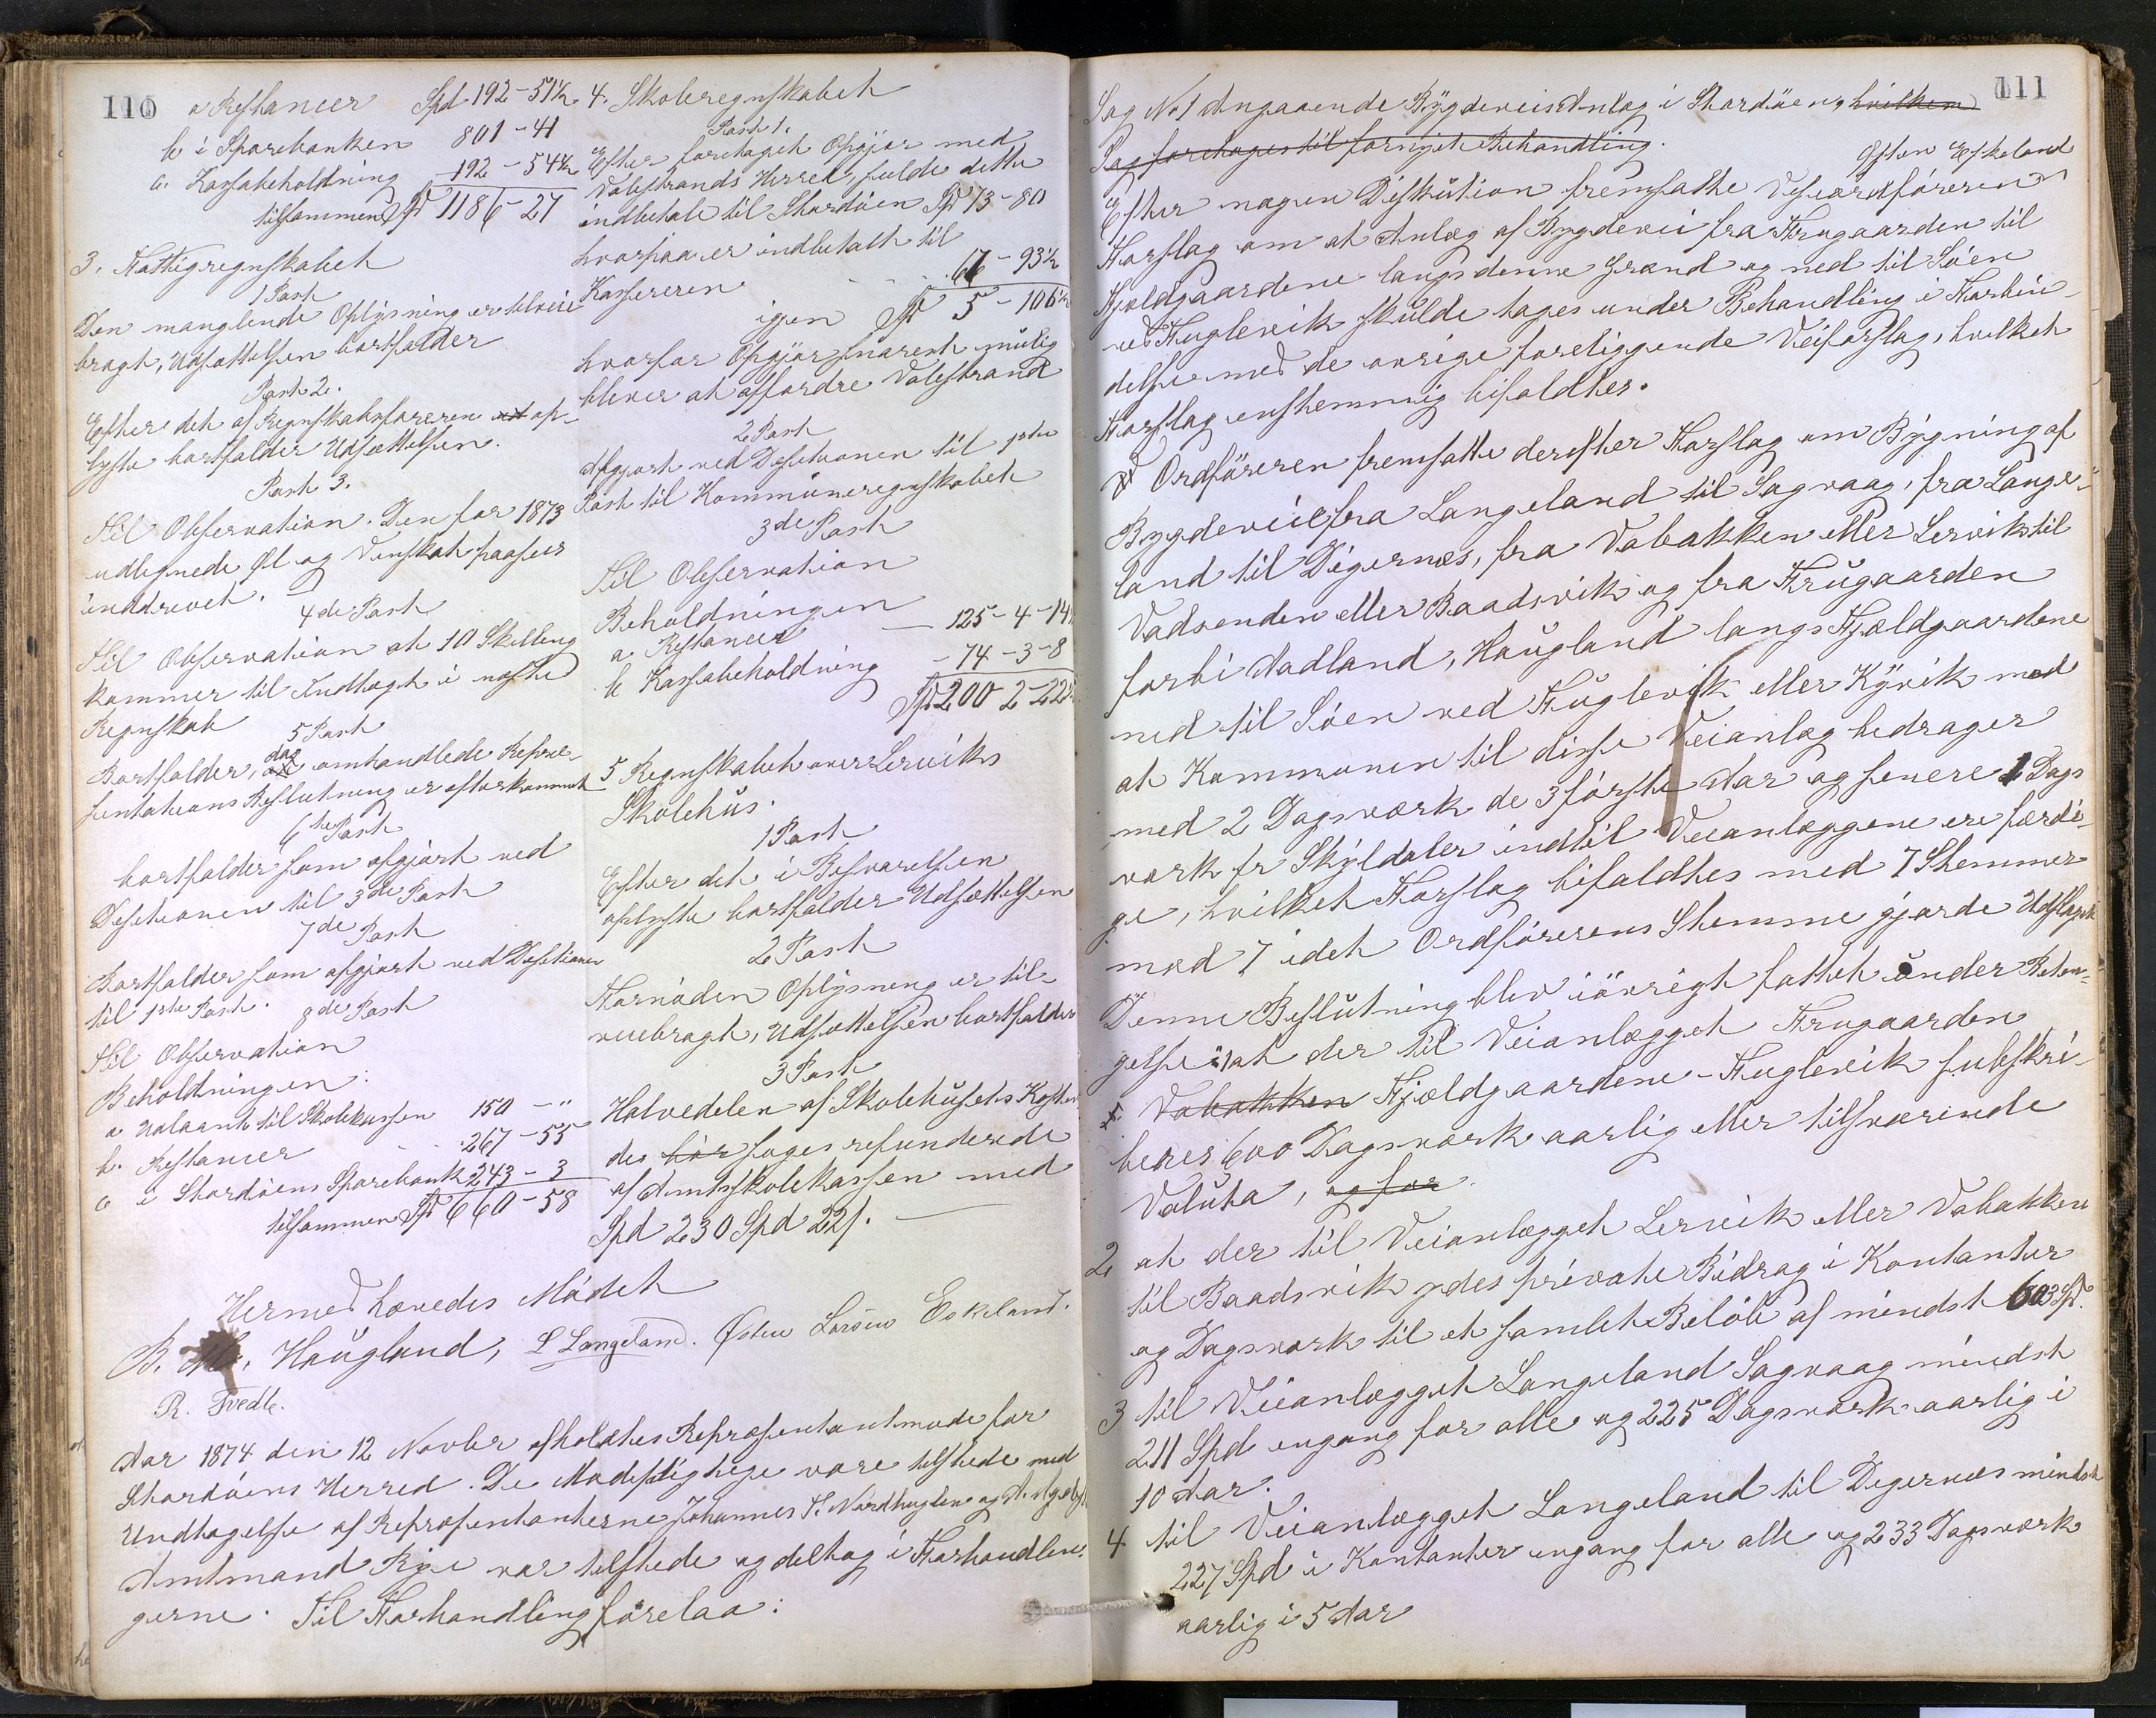 110
a Restancer Spd 192-51½
b i Sparebanken 801-41
c. Kassabeholdning 192-54½
tilsammen Spd 1186-27
3. Fattigregnskabet
1 Post
Den manglende Oplysning er tilveie
bragt, Udsættelsen bortfalder
Post 2.
Efter det af Regnskabsføreren op-
lyste bortfalder Udsættelsen.
Post 3.
Til Observation. Den for 1873
udlignede Øl og Vinskat paasees
inddrevet.
4de Post
Til Observation at 10 Skilling
kommer til Indtægt i næste
Regnskab
5 Post
Bortfalder, da omhandlede Repræ-
sentations Beslutning er efterkommet
6te Post
bortfalder som afgjort ved
Desitionen til 3de Post
7de Post
Bortfalder som afgjort ved Desitionen
til 1ste Post.
8de Post
Til Observation
Beholdningen:
a Udlaant til Skolekassen 150 - "
b. Restancer 267-55
c i Stordøens Sparebank 243-3
tilsammen Spd 660-58
4. Skoleregnskabet
Post 1.
Efter foretaget Opgjør med
Valestrands Herred, fulde dette
indbetale til Stordøen Spd 73-80
hvorpaa er indbetalt til
Kassereren 67-93½
igjen Spd 5-106½
hvorfor Opgjør snarest mulig
bliver at affordre Valestrand
2 Post
Afgjort ved Desitionen til 1ste
Post til Kommuneregnskabet
3de Post
Til Observation
Beholdningen
a Restancer 125-4-14
b Kassabeholdning 74-3-8
Spd 200 2-22
5 Regnskabet over Lerviks
Skolehus.
1 Post
Efter det i Besvarelsen
oplyste bortfalder Udsættelsen
2 Post
Fornøden Oplysning er til-
veiebragt, Udsættelsen bortfalder
3 Post
Halvedelen af Skolehusets Kosten
des bør søges refunderede
af Amtsskolekassen med
Spd 230 Spd 22 s.
Hermed hævedes Mødet
B. Haugland, L Langeland. Østen Larsen Eskeland.
R. Tvedte.
Aar 1874 den 12 Novbr afholdtes Repræsentantmøde for
Stordøens Herred. De Mødepligtige vare tilstede med
Undtagelse af Repræsentanterne Johannes T. Nordhuglen og A. Agdest
Amtmand Rye var tilstede og deltog i Forhandlin-
gerne. Til Forhandling forelaa:
111
Sag No 1 Angaaende Bygdeveisanlæg i Stordøen, hvilken
Sag foretoges til fornyet Behandling.
Østen Eskeland
Efter nogen Diskution fremsatte Viseordføreren
Forslag om at Anlæg af Bygdevei fra Frugaarden til
Fjeldgaardene langs denne Grænd og ned til Søen
ved Fuglevik skulde tages under Behandling i Forbin-
delse med de øvrige foreliggende Veiforslag, hvilket
Forslag enstemmig bifaldtes.
Ordføreren fremsatte derefter Forslag om Bygning af
Bygdeveie fra Langeland til Sagvaag, fra Lange-
land til Digernæs, fra Vabakken eller Lervik til
Vadvenden eller Baadsvik og fra Frugaarden
forbi Aadland, Haugland langs Fjeldgaardene
ned til Søen ved Fuglevik eller Kyvik med
at Kommunen til disse Veianlæg bedrager
med 2 Dagsværk de 3 første Aar og senere 1 Dags
værk pr Skylddaler indtil Veianlæggene ere færdi-
ge, hvilket Forslag bifaldtes med 7 Stemmer
mod 7 idet Ordførerens Stemme gjorde Udslaget
Denne Beslutning blev iøvrigt fattet under Betin-
gelse: 1 at der til Veianlægget Frugaarden
Vabakken Fjeldgaardene - Fuglevik subskri-
beres 600 Dagsværk aarlig eller tilsvarende
Valuta, og for
2 at der til Veianlægget Lervik eller Vabakken
til Baadsvik ydes private Bidrag i Kontanter
og Dagsværk til et samlet Beløb af mindst 603 Spd.
3 til Veianlægget Langeland Sagvaag mindst
211 Spd engang for alle og 225 Dagsværk aarlig i
10 Aar.
4 til Veianlægget Langeland til Digernæs mindst
227 Spd i Kontanter engang for alle og 233 Dagsværk
aarlig i 5 Aar